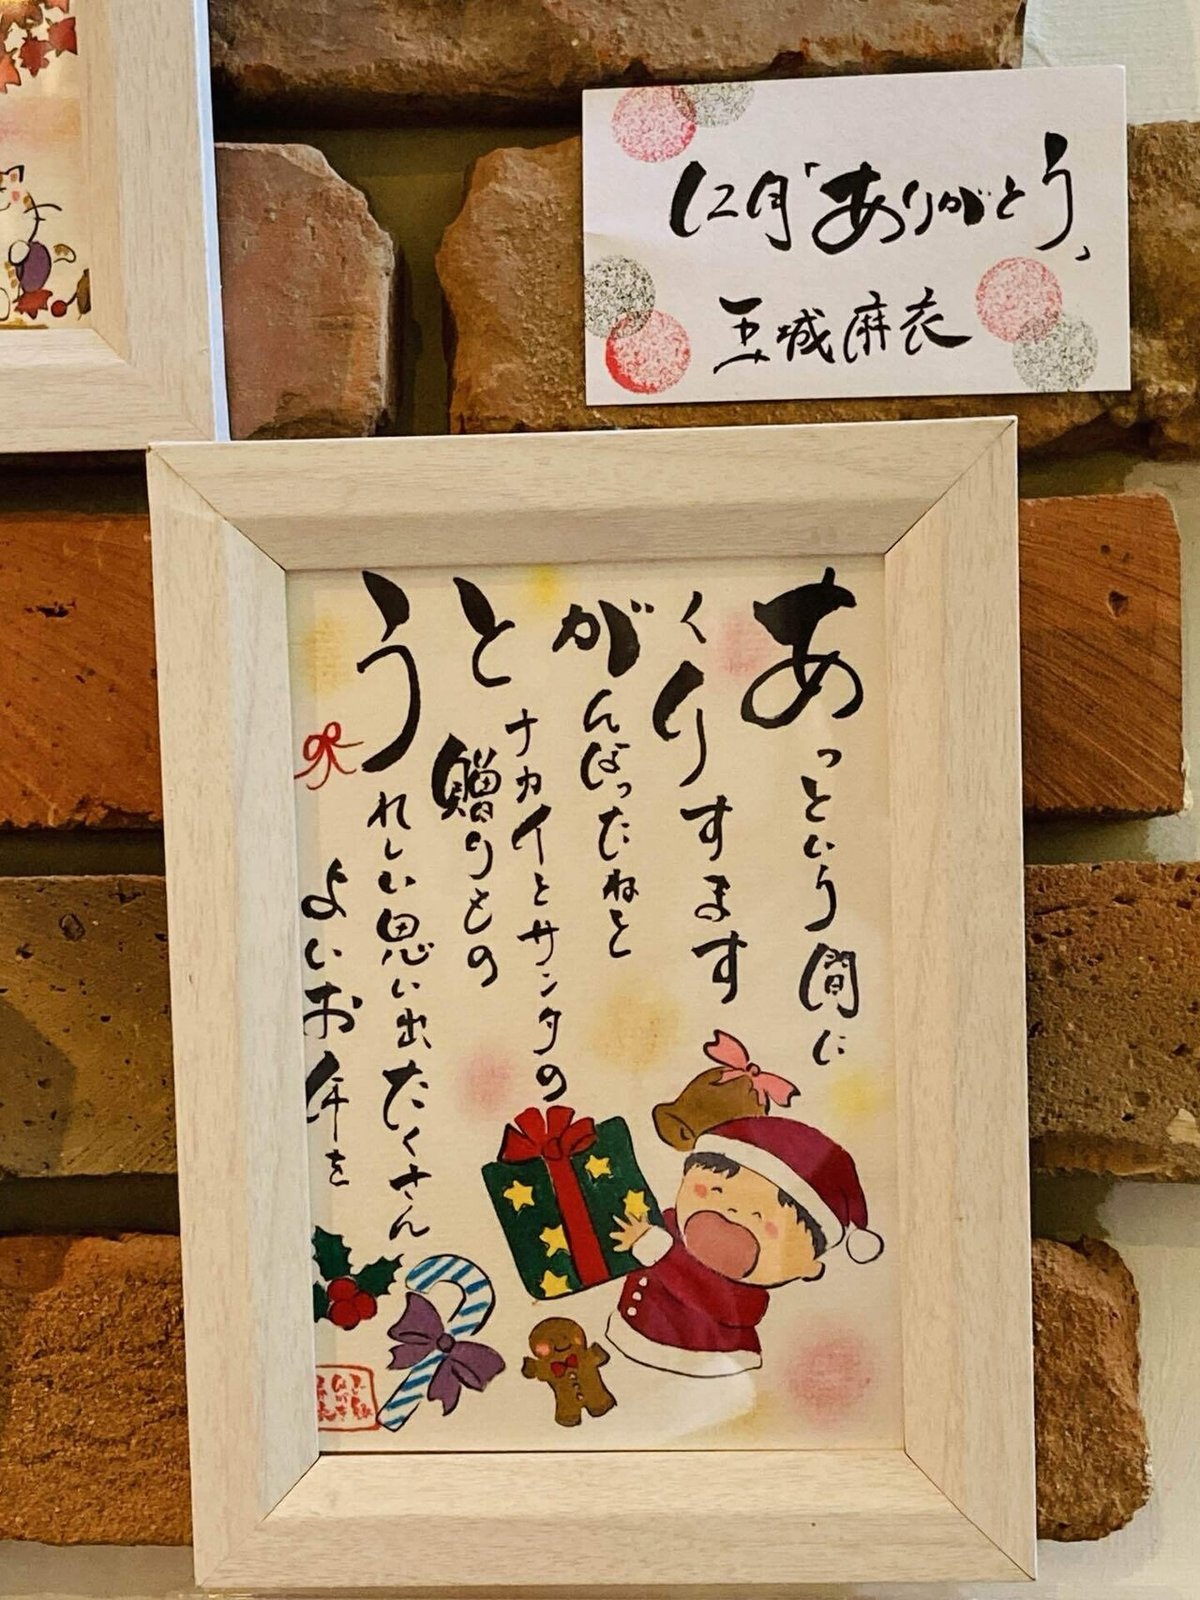 12月「ありがとう」
玉城麻衣
あっという間に
くりすます
がんばったねと
トナカイとサンタの
贈りもの
うれしい思い出たくさん
よいお年を